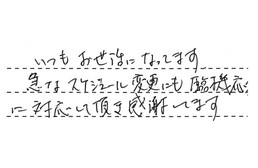 いつもお世話になってます
急なスケジュール変更にも臨機応
に対応して頂き感謝してます